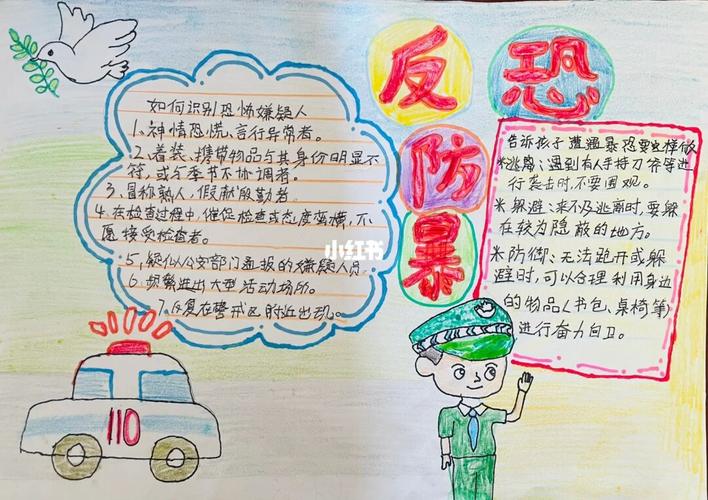 反恐防暴
如何识别恐怖嫌疑人
1、神情恐慌、言行异常者。
2、着装、携带物品与其身份明显不
符,或与季节不协调者。
3、冒称熟人、假献殷勤者。
4、在检查过程中,催促检查或态度蛮横,不
愿接受检查者。
5、疑似公安部门通报的嫌疑人员
6、频繁进出大型活动场所。
7、反复在警戒区附近出现。
小红书
告诉孩子遭遇暴恐要这样做
※逃离:遇到有人手持刀斧等进
行袭击时,不要围观。
※躲避:来不及逃离时,要躲
在较为隐蔽的地方。
※防御:无法跑开或躲
避时,可以合理利用身边
的物品(书包、桌椅等)
进行奋力自卫。
110